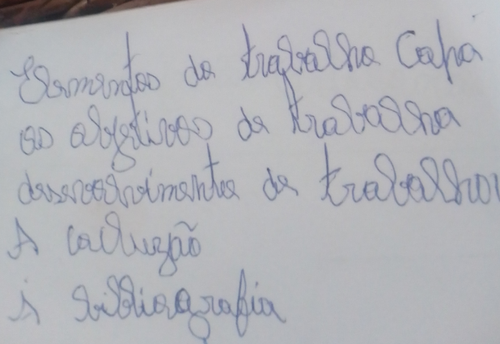 Elementos do trabalho Capa
os objetivos do trabalho
desenvolvimentos do trabalho
A concluzão
A bibliografia